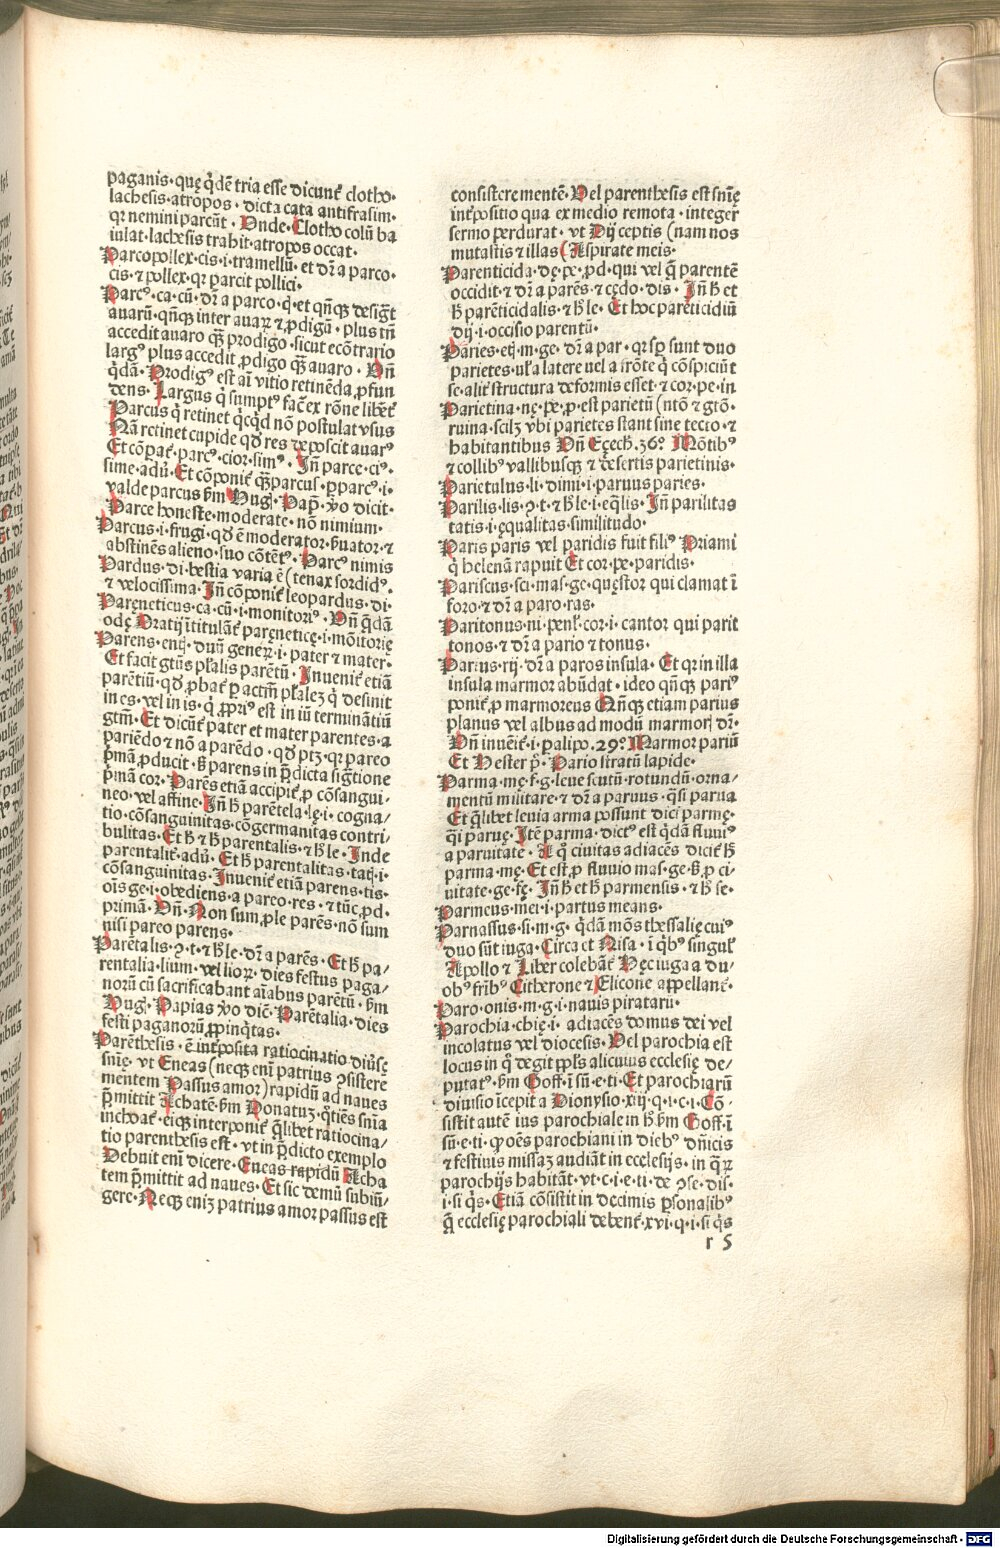 paganis·quę q̇dē tria esse dicunt᷑ clotho·
lachesis·atropos·dicta cata antifrasim·
qꝛ nemini parcūt·Vnde·Clotho colū ba
iulat·lachesis trahit·atropos occat·
Parcopollex·cis·i·tramellū·et dr̄ a parco·
cis·⁊ pollex·qꝛ parcit pollici·
Parcꝰ·ca·cū·dr̄ a parco·q̇·et qn̄qꝫ desigt᷑
auarū·qn̄qꝫ inter auaꝝ ⁊ ꝓdigū·plus tn̄
accedit auaro qꝫ̄ prodigo·sicut ecōtrario
largꝰ plus accedit ꝓdigo qꝫ̄ auaro·Vn̄
q̇dā·Prodigꝰ est aī vitio retinēda ꝓfun
dens·Largus q̇ sumptꝰ facē ex rōne libet᷑
Parcus q̇ retinet q̇cq̇d nō postulat vsus
Nā retinet cupide qd̄ res deposcit auarꝰ
Et cōpat᷑·parcꝰ·cior·simꝰ·Jn̄ parce·ciꝰ·
sime·adū·Et cōponit᷑ qꝫ̄parcus·ꝑparcꝰ·i·
valde parcus ẜm Hug·Pap̄·v̊o dicit·
Parce honeste·moderate·nō nimium·
Parcus·i·frugi·qd̄ ē moderator·ẜuator·⁊
abstinēs alieno·suo cōtētꝰ·Parcꝰ nimis
Pardus·di·bestia varia ē (tenax sordidꝰ·
⁊ velocissima·Jn̄ cōponit᷑ leopardus·di·
Paręneticus·ca·cū·i·monitoriꝰ·Vn̄ q̇dā
odę Oratij ītitulāt᷑ paręneticę·i·mōitorię
Parens·entꝭ·duū geneꝝ·i·pater ⁊ mater·
Et facit gtūs pľalis parētū·Jnuenit᷑ etiā
parētiū·qd̄ ꝓbat᷑ ꝑ actm̄ pľalez q̇ desinit
in es·vel in is·q̇ ꝓpriꝰ est in iū terminātiū
gtm̄·Et dicūt᷑ pater et mater parentes·a
pariēdo ⁊ nō a parēdo·qd̄ ptꝫ·qꝛ pareo
pͥmā ꝓducit·ẜ parens in p̄dicta sigtione
pͥmā cor·Parēs etiā accipit᷑ ꝓ cōsangui-
neo·vel affine·Jn̄ h̄ parētela·lę·i·cogna-
tio·cōsanguinitas·cōgermanitas contri-
bulitas·Et h̄ ⁊ h̄ parentalis·⁊ h̄ le·Jnde
parentalit᷑·adū·Et h̄ parentalitas·tatꝭ·i·
cōsanguinitas·Jnuenit᷑ etiā parens·tis·
oīs ge·i·obediens·a pareo·res·⁊ tūc ꝓd·
primā·Vn̄·Non sum ꝓle parēs·nō sum
nisi pareo parens·
Parētalis·ꝯ·t·⁊ h̄ le·dr̄ a parēs·Et h̄ pa-
rentalia·lium·vel lioꝝ·dies festus paga-
norū cū sacrificabant aīabus parētū·ẜm
Hug·Papias v̊o dic̄·Parētalia·dies
festi paganorū ꝓpinq̇tas·
Parēthesis·ē int᷑posita ratiocinatio diuīsę
snīę·vt Eneas (neqꝫ enī patrius ꝯsistere
mentem Passus amor) rapidū ad naues
p̄mittit Achatē·ẜm Donatuꝫ·q̇tiēs snīa
inchoat᷑·eiqꝫ interponit᷑ q̄libet ratiocina-
tio parenthesis est·vt in p̄dicto exemplo
Debuit enī dicere·Eneas rapidū Acha
tem p̄mittit ad naues·Et sic demū subiū-
gere·Neqꝫ eniꝫ patrius amor passus est
consistere mentē·Vel parenthesis est snīę
int᷑positio qua ex medio remota·integer
sermo perdurat·vt Dij ceptis (nam nos
mutastis ⁊ illas (Aspirate meis·
Parenticida·dę·pe·ꝓd·qui vel q̄ parentē
occidit·⁊ dr̄ a parēs·⁊ cędo·dis·Jn̄ h̄ et
h̄ parēticidalis·⁊ h̄ le·Et hoc parēticidiū
dij·i·occisio parentū·
Paries·etꝭ·m·ge·dr̄ a par·qꝛ sꝑ sunt duo
parietes·vľ a latere uel a frōte q̇ cōspiciūt
se·alit᷑ structura deformis esset·⁊ cor·pe·in
Parietina·nę·pe·ꝓ·est parietū (ntō ⁊ gtō·
ruina·scilꝫ vbi parietes stant sine tecto·⁊
habitantibus Vn̄ Eęech·36?·Mōtibꝰ
⁊ collibꝰ vallibusqꝫ ⁊ desertis parietinis·
Parietulus·li·dimi·i·paruus paries·
Parilis·lis·ꝯ·t·⁊ h̄ le·i·eq̄lis·Jn̄ parilitas
tatis·i·ęqualitas·similitudo·
Paris paris vel paridis fuit filiꝰ Priami
q̇ helenā rapuit Et cor·pe·paridis·
Pariscus·sci·mas·ge·quęstor qui clamat ī
foro·⁊ dr̄ a paro·ras·
Paritonus·ni·penľ·cor·i·cantor qui parit
tonos·⁊ dr̄ a pario ⁊ tonus·
Parius·rij·dr̄ a paros insula·Et qꝛ in illa
insula marmor abūdat·ideo qn̄qꝫ pariꝰ
ponit᷑ ꝓ marmoreus Qn̄qꝫ etiam parius
planus vel albus ad modū marmorꝭ dr̄·
Vn̄ inuēit᷑·i·palipo·29?·Marmor pariū
Et Hester p̊·Pario stratū lapide·
Parma·mę·f·g·leue scutū·rotundū·orna-
mentū militare·⁊ dr̄ a paruus·q̄si parua
Et q̄libet leuia arma possunt dici parmę·
q̄i paruę·Jtē parma·dictꝰ est q̇dā fluuiꝰ
a paruitate·A q̊ ciuitas adiacēs dicit᷑ h̄
parma·mę·Et est ꝓ fluuio mas·ge·ẜ ꝓ ci-
uitate·ge·fę·Jn̄ h̄ et h̄ parmensis·⁊ h̄ se·
Parmeus·mei·i·partus means·
Parnassus·si·m·g·q̇dā mōs thessalię cuiꝰ
duo sūt iuga·Circa et Nisa·ī q̇bꝰ singuľ
Apollo ⁊ Liber colebāt᷑ Hęc iuga a du-
obꝰ fr̄ibꝰ Citherone ⁊ Elicone appellant᷑·
Paro·onis·m·g·i·nauis piratarū·
Parochia·chię·i·adiacēs domus dei vel
incolatus vel diocesis·Vel parochia est
locus in q̊ degit ppľs alicuius ecclesię de-
putatꝰ·ẜm Goff·ī sū·e·ti·Et parochiarū
diuisio īcepit a Dionysio·xiij·q·i·c·i·Cō-
sistit autē ius parochiale in h̄ ẜm Goff·ī
sū·e·ti·ꝙ oēs parochiani in diebꝰ dn̄icis
⁊ festiuis missaꝫ audiāt in ecclesijs·in q̄ꝝ
parochijs habitāt·vt·c·i·e·ti·de ꝯse·dis·
i·si q̇s·Etiā cōsistit in decimis ꝑsonalibꝰ
q̄ ecclesię parochiali debent᷑·xvi·q·i·si q̇s
r 5
Digitalisierung gefördert durch die Deutsche Forschungsgemeinschaft · DFG